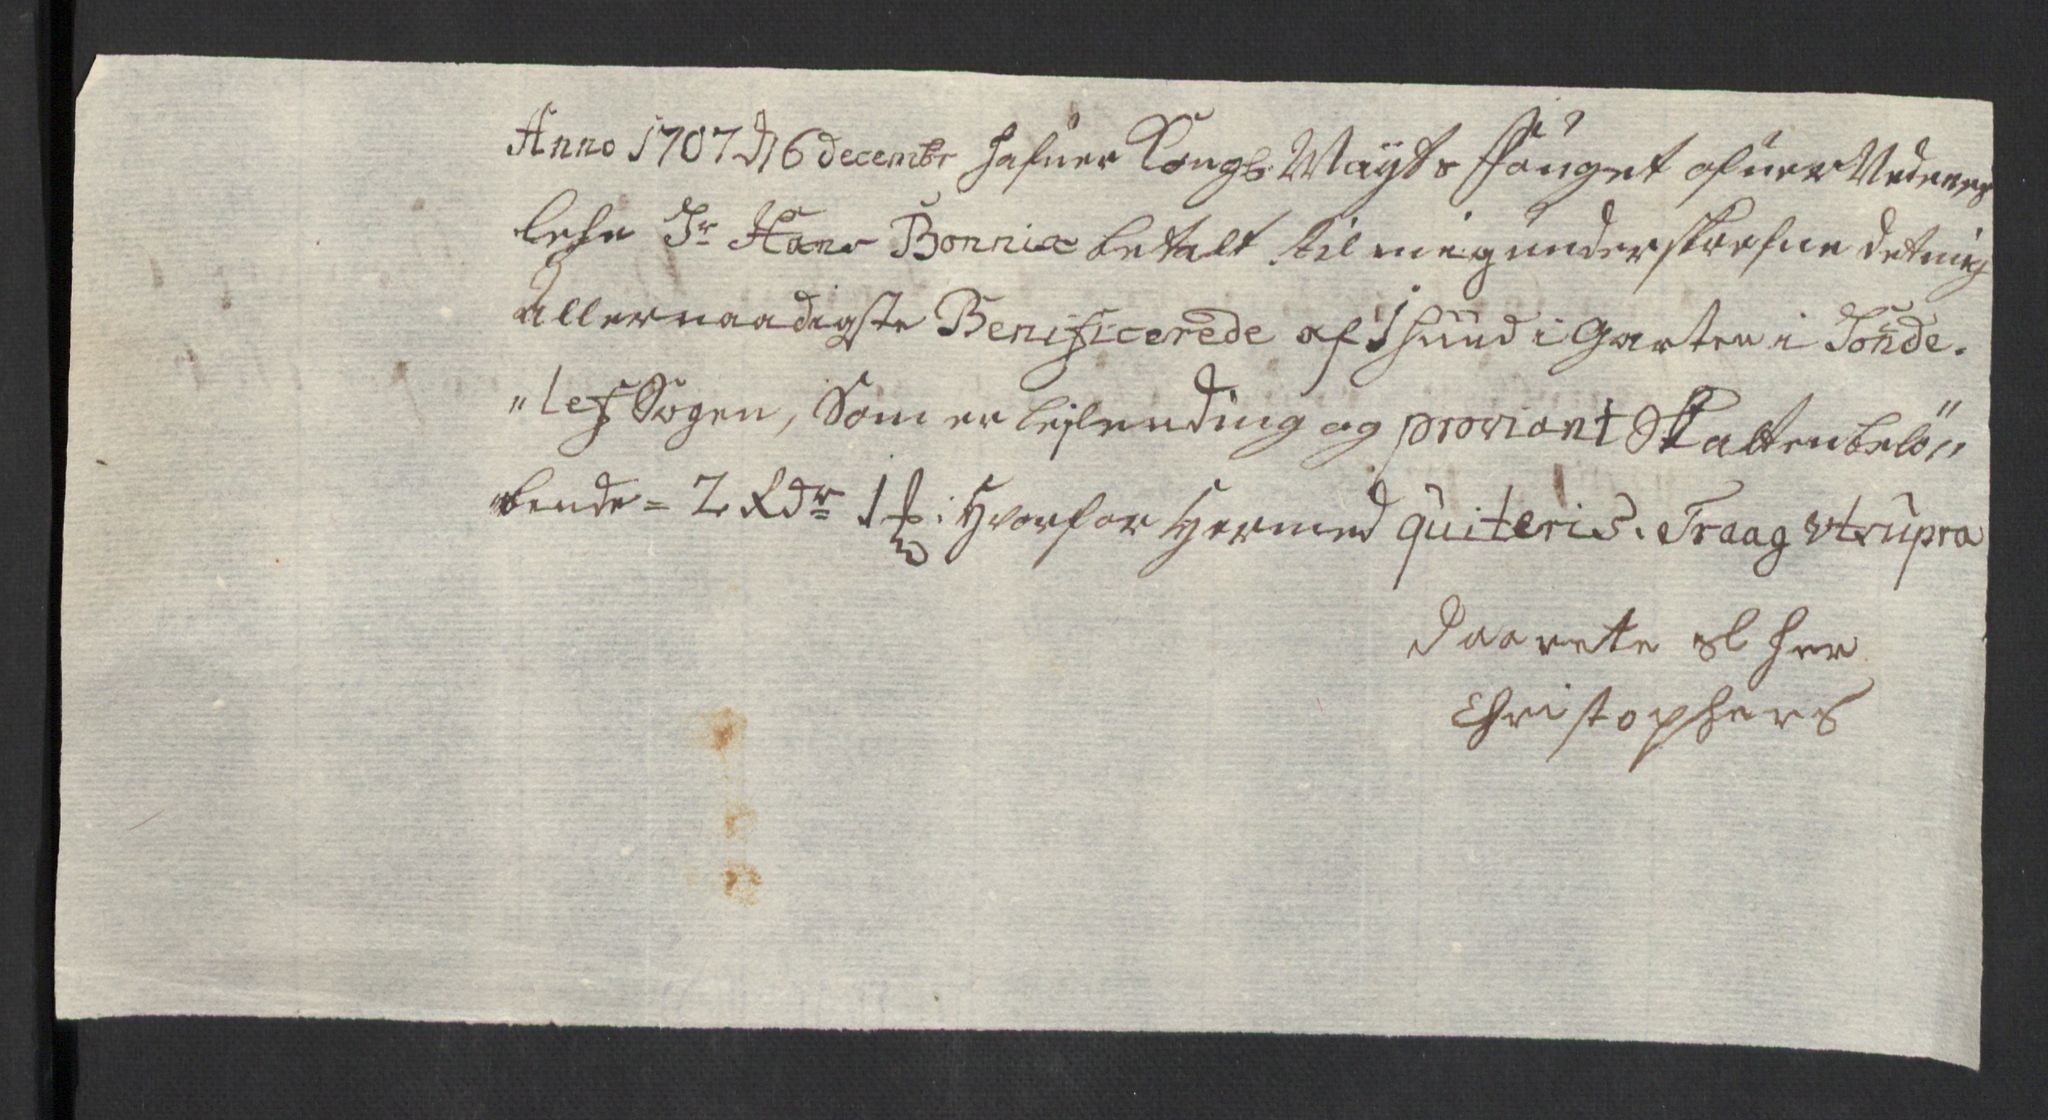 Anno 1707 d 16 decembr hafuer Kongl: Maÿts ffouget ofuer Nedenes
lehn Sr Hans Bonnix betalt til mig underskrefne det mig
allernaadigste Benificerede af 1 huud i Garten i Sønde-
"lef Sogen, Som er leilending og proviant Skatten belø"
bende = 2 Rdr 1 ß: Hvorfor Hermed quiteris. Traag ut supra
Daarete sl her
Christophers